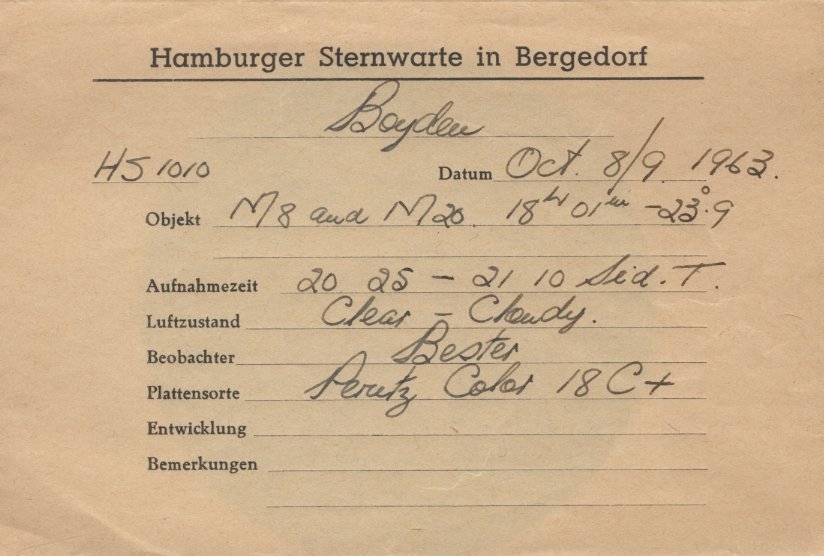 Hamburger Sternwarte in Bergedorf
Boyden
HS 1010 Datum Oct. 8/9. 1963.
Objekt M8 and M20. 18ʰ 01ᵐ -23°.9
Aufnahmezeit 20 25 - 21 10 Sid. T.
Luftzustand Clear - Cloudy.
Beobachter Bester
Plattensorte Perutz Color 18 C+
Entwicklung
Bemerkungen